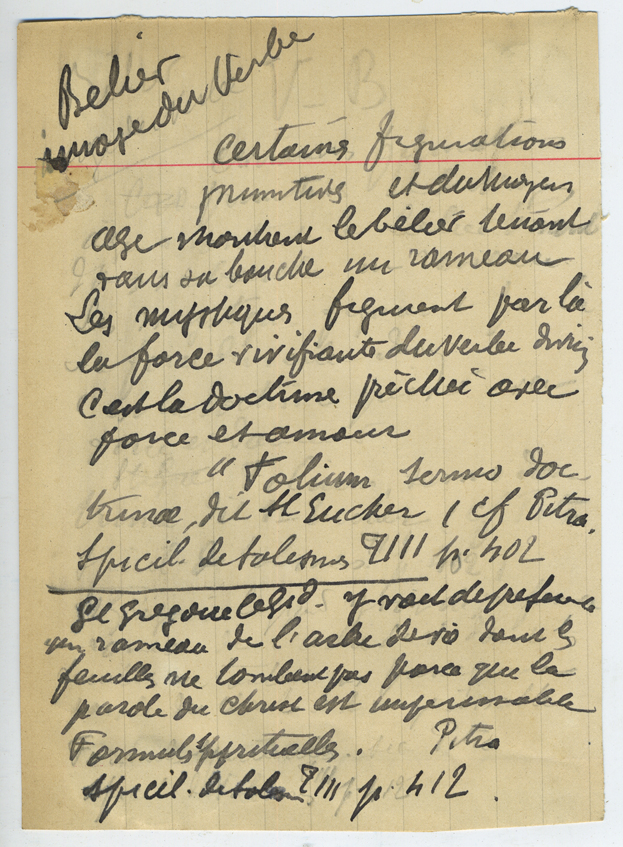 Belier
image du Verbe
Certaines figurations
primitives et du Moyen
age montrent le bélier tenant
dans sa bouche un rameau
Les mystiques figurent par là
la force vivifiante du verbe divin
C'est la doctrine prêchée avec
force et amour
"Folium sermo doc-
trinæ, dit St Eucher (cf Pitra,
Spicil. de Solesmes TIII p. 402
St Gregoire le Gd. y voit de preference
un rameau de l'arbre de vie dont les
feuilles ne tombent pas parce que la
parole du Christ est imperissable
Formules spirituelles. Pitra
Spicil. de Solesm TIII p. 412.